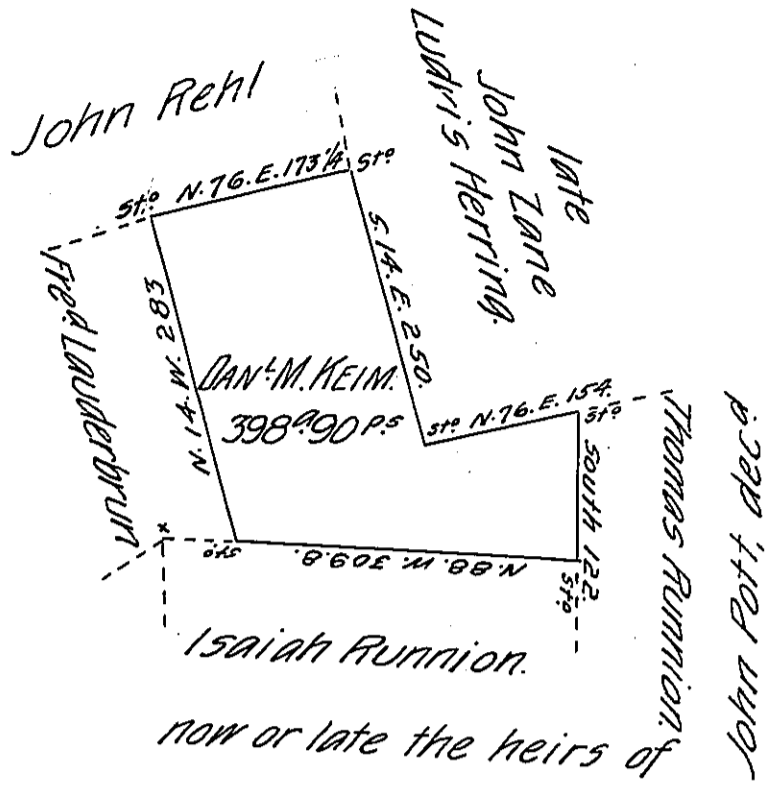 John Rehl
late
John Zane
Ludris Herring.
St.o N.76.E.173¼ Sto
S.14.E.250.
Fred Lauderbrun
N.14.W.283
DANL.M.KEIM.
398a.90 P.s
sto N.76.E.154.
Sto
South 122.
Sto.
N.88.W.309.8.
Sto.
x
Thomas Runnion.
John Pott, decd.
Isaiah Runnion.
now or late the heirs of